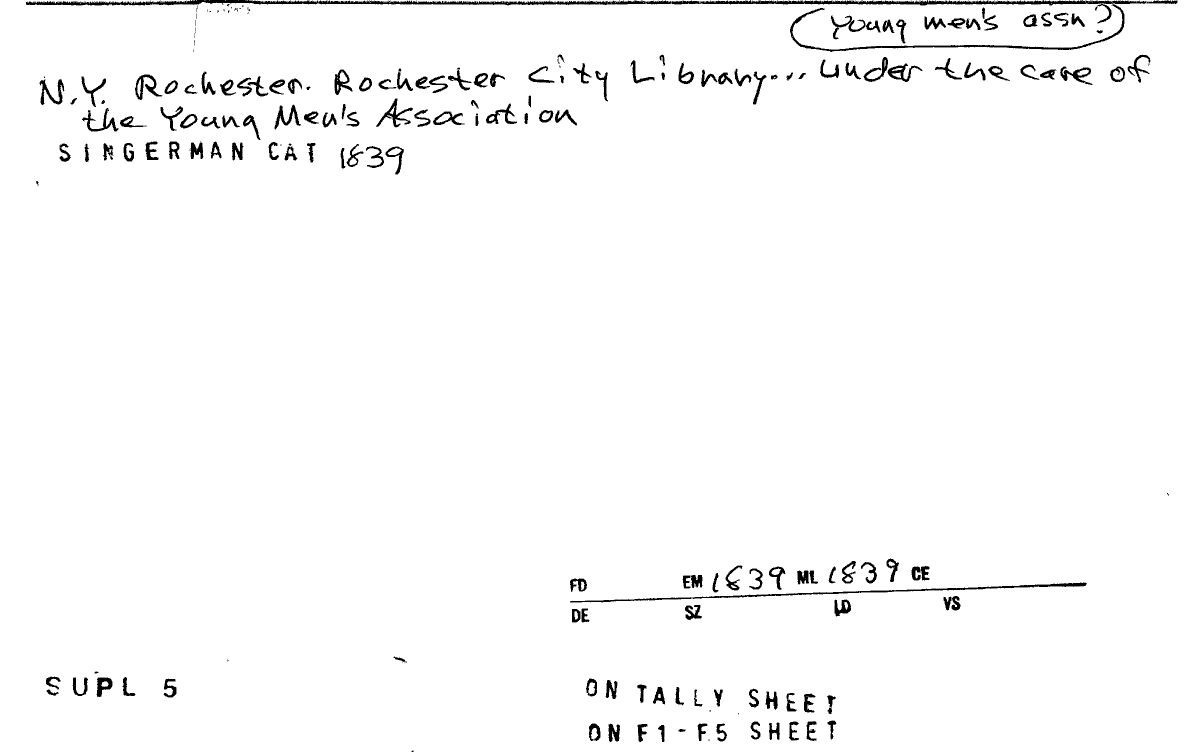 (Young men's assn?)
N.Y. Rochester. Rochester City Library... under the care of
the Young Men's Association
SINGERMAN CAT 1839
FD EM 1839 ML 1839 CE
DE SZ LD VS
SUPL 5
ON TALLY SHEET
ON F1-F5 SHEET